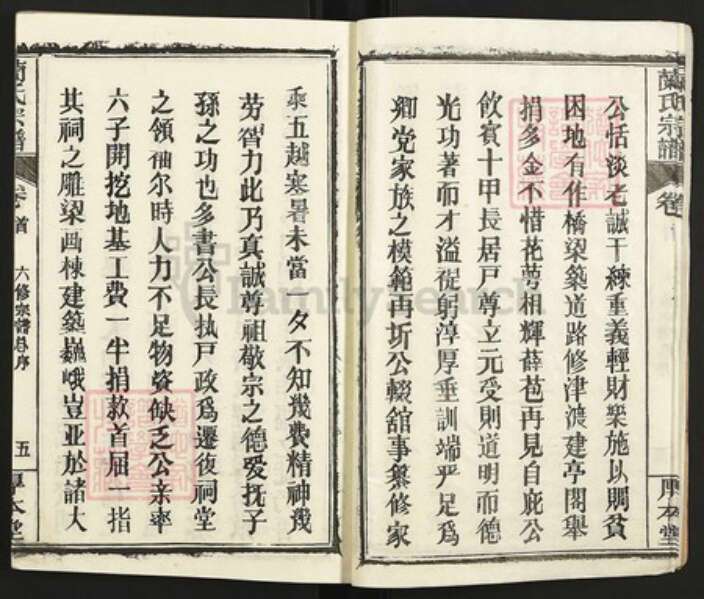 蘭氏宗譜 卷
厚本堂
公恬淡老誠干練重義輕財樂施以賙貧
困地有作橋梁築道路修津渡建亭閣舉
捐多金不惜花萼相輝薛苞再見自庇公
飲賓十甲長居尸尊立元受則道明而德
光功著而才溢禔躬淳厚垂訓端严足爲
鄉党家族之模範再圻公輟舘事纂修家
乘五越寒暑未當一夕不知幾費精神幾
劳智力此乃真誠尊祖敬宗之德爱抚子
孫之功也多書公長执戸政爲遷復祠堂
之領袖尔時人力不足物资缺乏公亲率
六子開挖地基工費一半捐款首屈一指
其祠之雕梁画棟建築巍峨豈亚於諸大
蘭氏宗譜 卷首 六修宗譜 序 五
厚本堂
FamilySearch